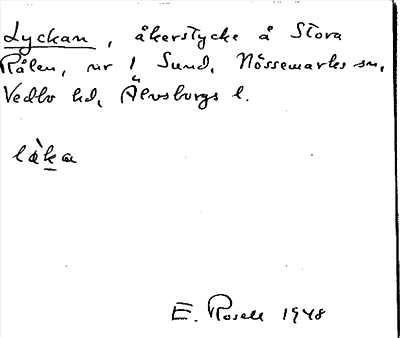 Lyckan, åkerstycke å Stora
Rålen, nr 1 Sund, Nössemarks sn,
Vedbo hd, Älvsborgs l.
làka
E. Rosell 1948